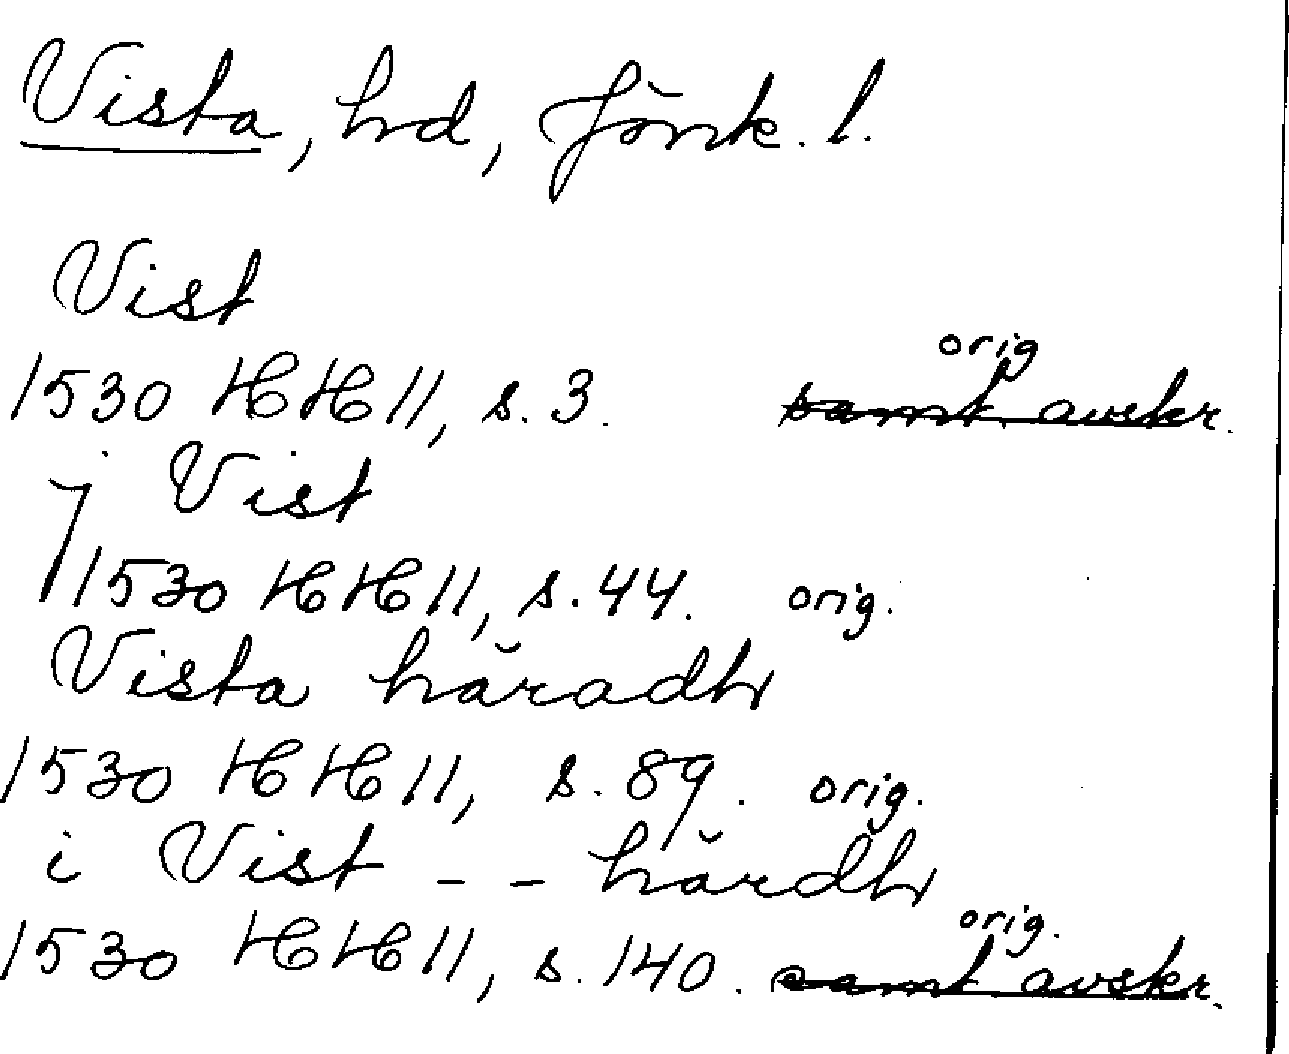 Vista, hd, Jönk. l.
Vist
orig
1530 HH 11, s. 3. samt. avskr.
j Vist
1530 HH 11, s. 44. orig.
Vista häradh
1530 HH 11, s. 89. orig.
i Vist - - härdh
orig.
1530 HH 11, s. 140. samt avskr.